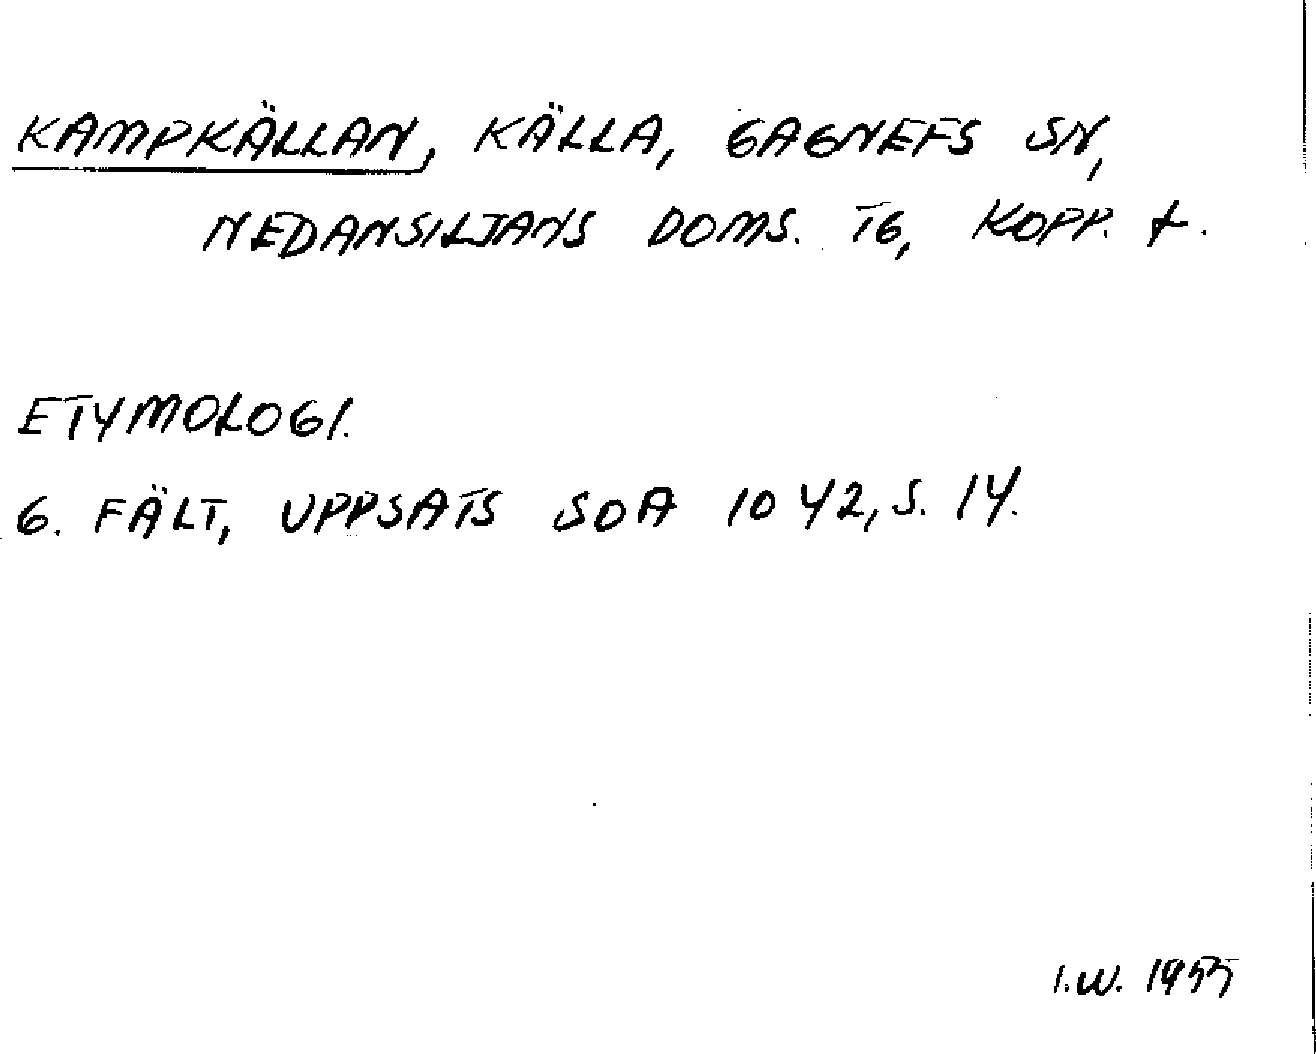 KAMPKÄLLAN, KÄLLA, GAGNEFS SN,
NEDANSILJANS DOMS. TG, KOPP. L.
ETYMOLOGI.
G. FÄLT, UPPSATS SOA 1042, S. 14.
I.W. 1955